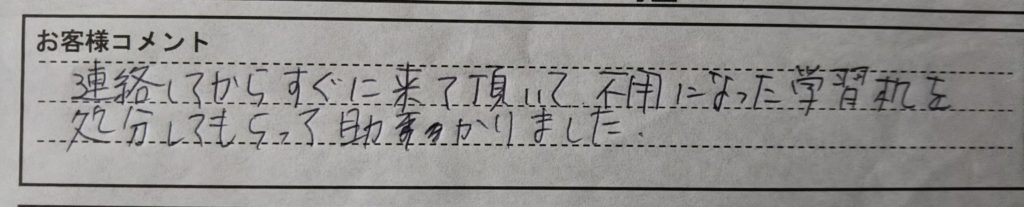 お客様コメント
連絡してからすぐに来て頂いて不用になった学習机を
処分してもらって助かりました.